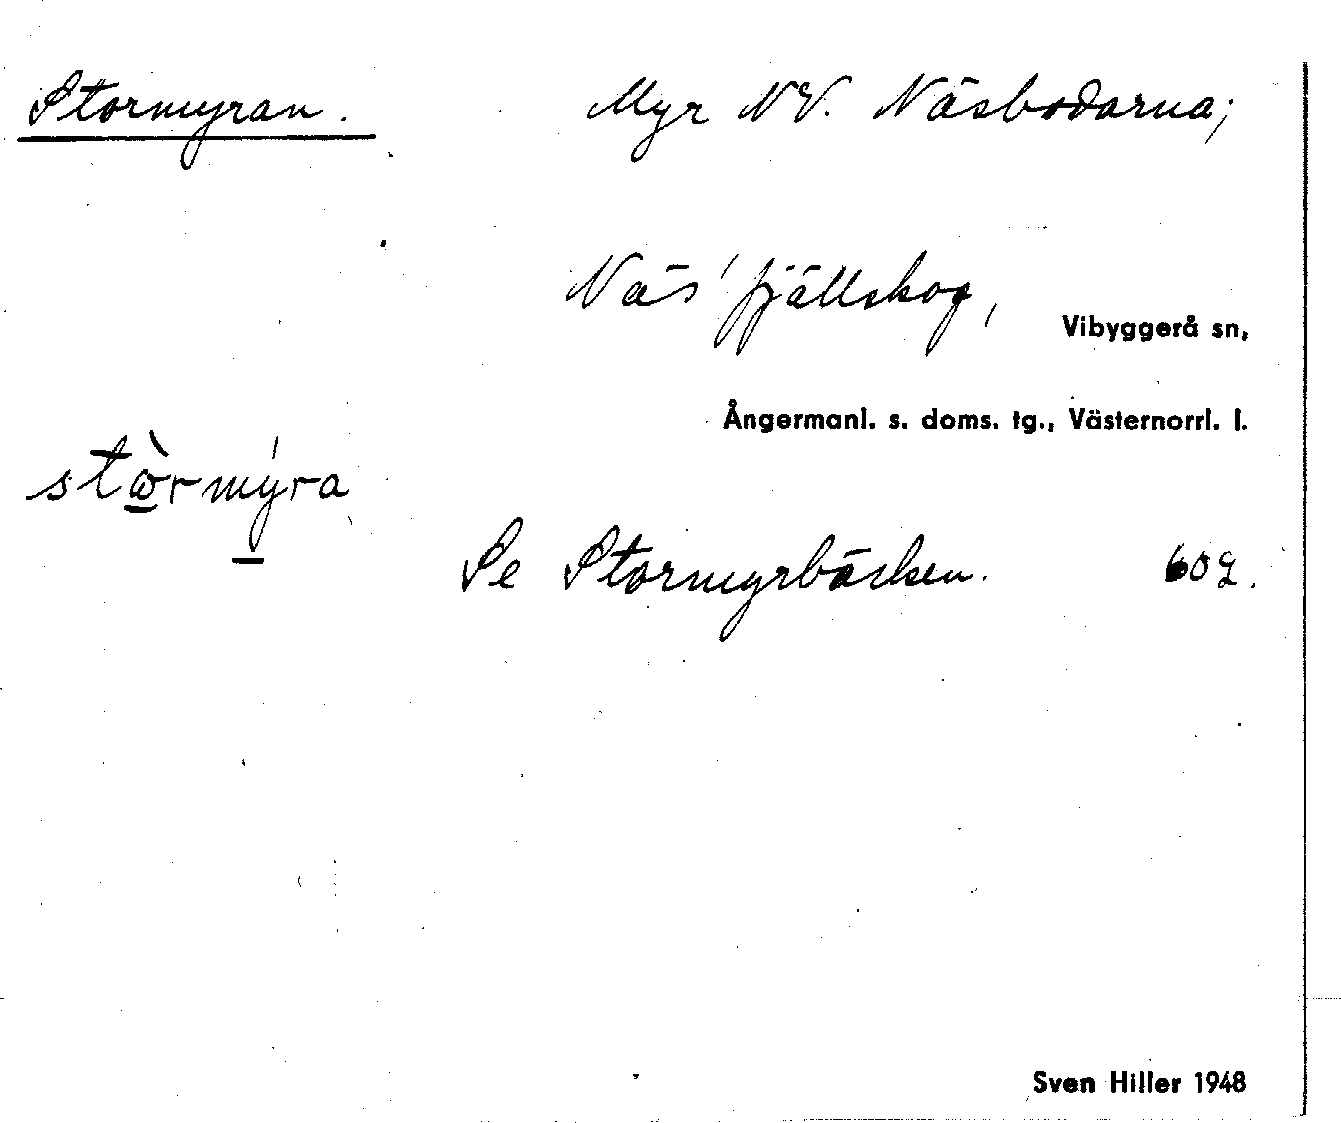 Stormyran. Myr NV. Näsbodarna;
Näs' fjällskog,
Vibyggerå sn,
Ångermanl. s. doms. tg., Västernorrl. l.
Se Stormyrbäcken.
Sven Hiller 1948